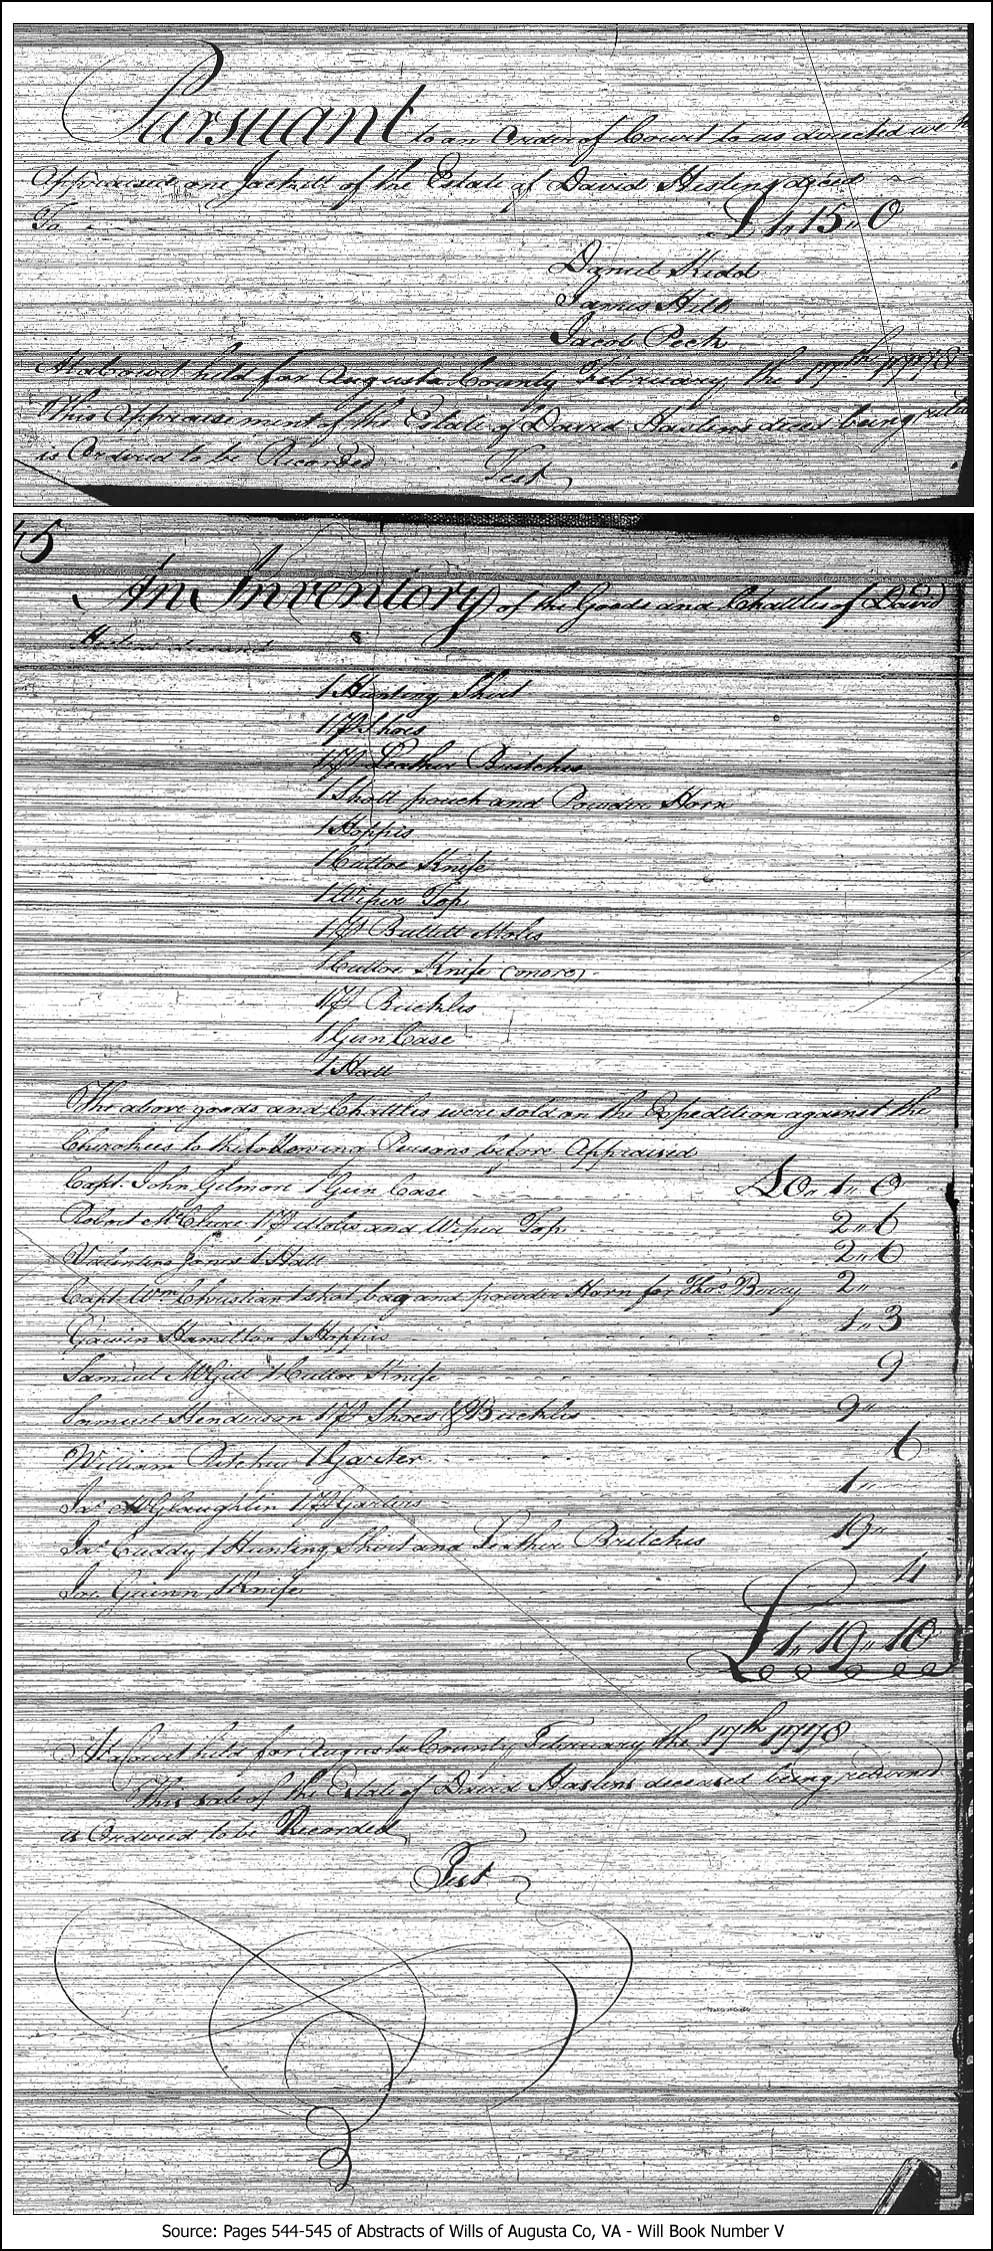 Pursuant to an Order of Court to us directed we
Appraised one Jackett of the Estate of David Hestings deced
To £1,,15,,0
Daniel Kidd
James Hill
Jacob Peck
At a Court held for Augusta County February the 17th 1778
This Appraisement of the Estate of David Hastens deced being
is Ordered to be Recorded
Test
45
An Inventory of the Goods and Chattles of David
1 Hunting Shirt
1 Pr Shoes
1 Pr Leather Britches
1 Shott pouch and Powder Horn
1 Hoppis
1 Cuttoe Knife
1 Wiper Top
1 Pr Bullitt Molds
1 Cuttoe Knife (more)
1 Pr Buckles
1 Gun Case
1 Hatt
The above goods and Chattles were sold on the Expedition against the
Cherokees to the following Persons before Appraised
Capt. John Gilmore 1 Gun Case £0,,1,,0
Robert McClure 1 Pr Molds and Wiper Top 2,,6
Valentine Jones 1 Hatt 2,,6
Capt. Wm Christian 1 shot bag and powder Horn for Thos 2,,
Gawin Hamilton 1 Hoppiss 1,,3
Samuel McGill 1 Cuttoe Knife 9
Samuel Henderson 1 Pr Shoes & Buckles 9,,
William Ritchie 1 Garter 6
Jas McGlaughlin 1 Pr 1,,
Jas Cuddy 1 Hunting Shirt and Leather Britches 19,,
Guinn 1 Knife 4
£1,,19,,10
At a Court held for Augusta County February the 17th 1778
This sale of the Estate of David Hastens deceased being returned
is Ordered to be Recorded
Test
Source: Pages 544-545 of Abstracts of Wills of Augusta Co, VA - Will Book Number V